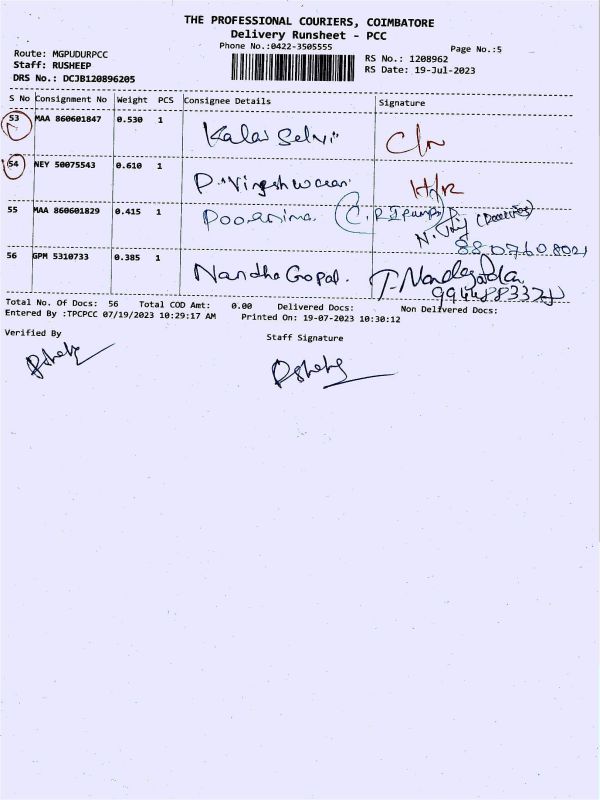 THE PROFESSIONAL COURIERS, COIMBATORE
Delivery Runsheet - PCC
Phone No.:0422-3505555
Page No.:5
Route: MGPUDURPCC
Staff: RUSHEEP
DRS No.: DCJB120896205
RS No.: 1208962
RS Date: 19-Jul-2023
S No Consignment No Weight PCS Consignee Details Signature
53 MAA 860601847 0.530 1 Kalai Selvi C/n
54 NEY 50075543 0.610 1 P. Vigneshwaran H/R
55 MAA 860601829 0.415 1 Poornima
8807608021
56 GPM 5310733 0.385 1 NandhaGopal.
Total No. Of Docs: 56 Total COD Amt: 0.00 Delivered Docs: Non Delivered Docs:
Entered By :TPCPCC 07/19/2023 10:29:17 AM Printed On: 19-07-2023 10:30:12
Verified By
Staff Signature